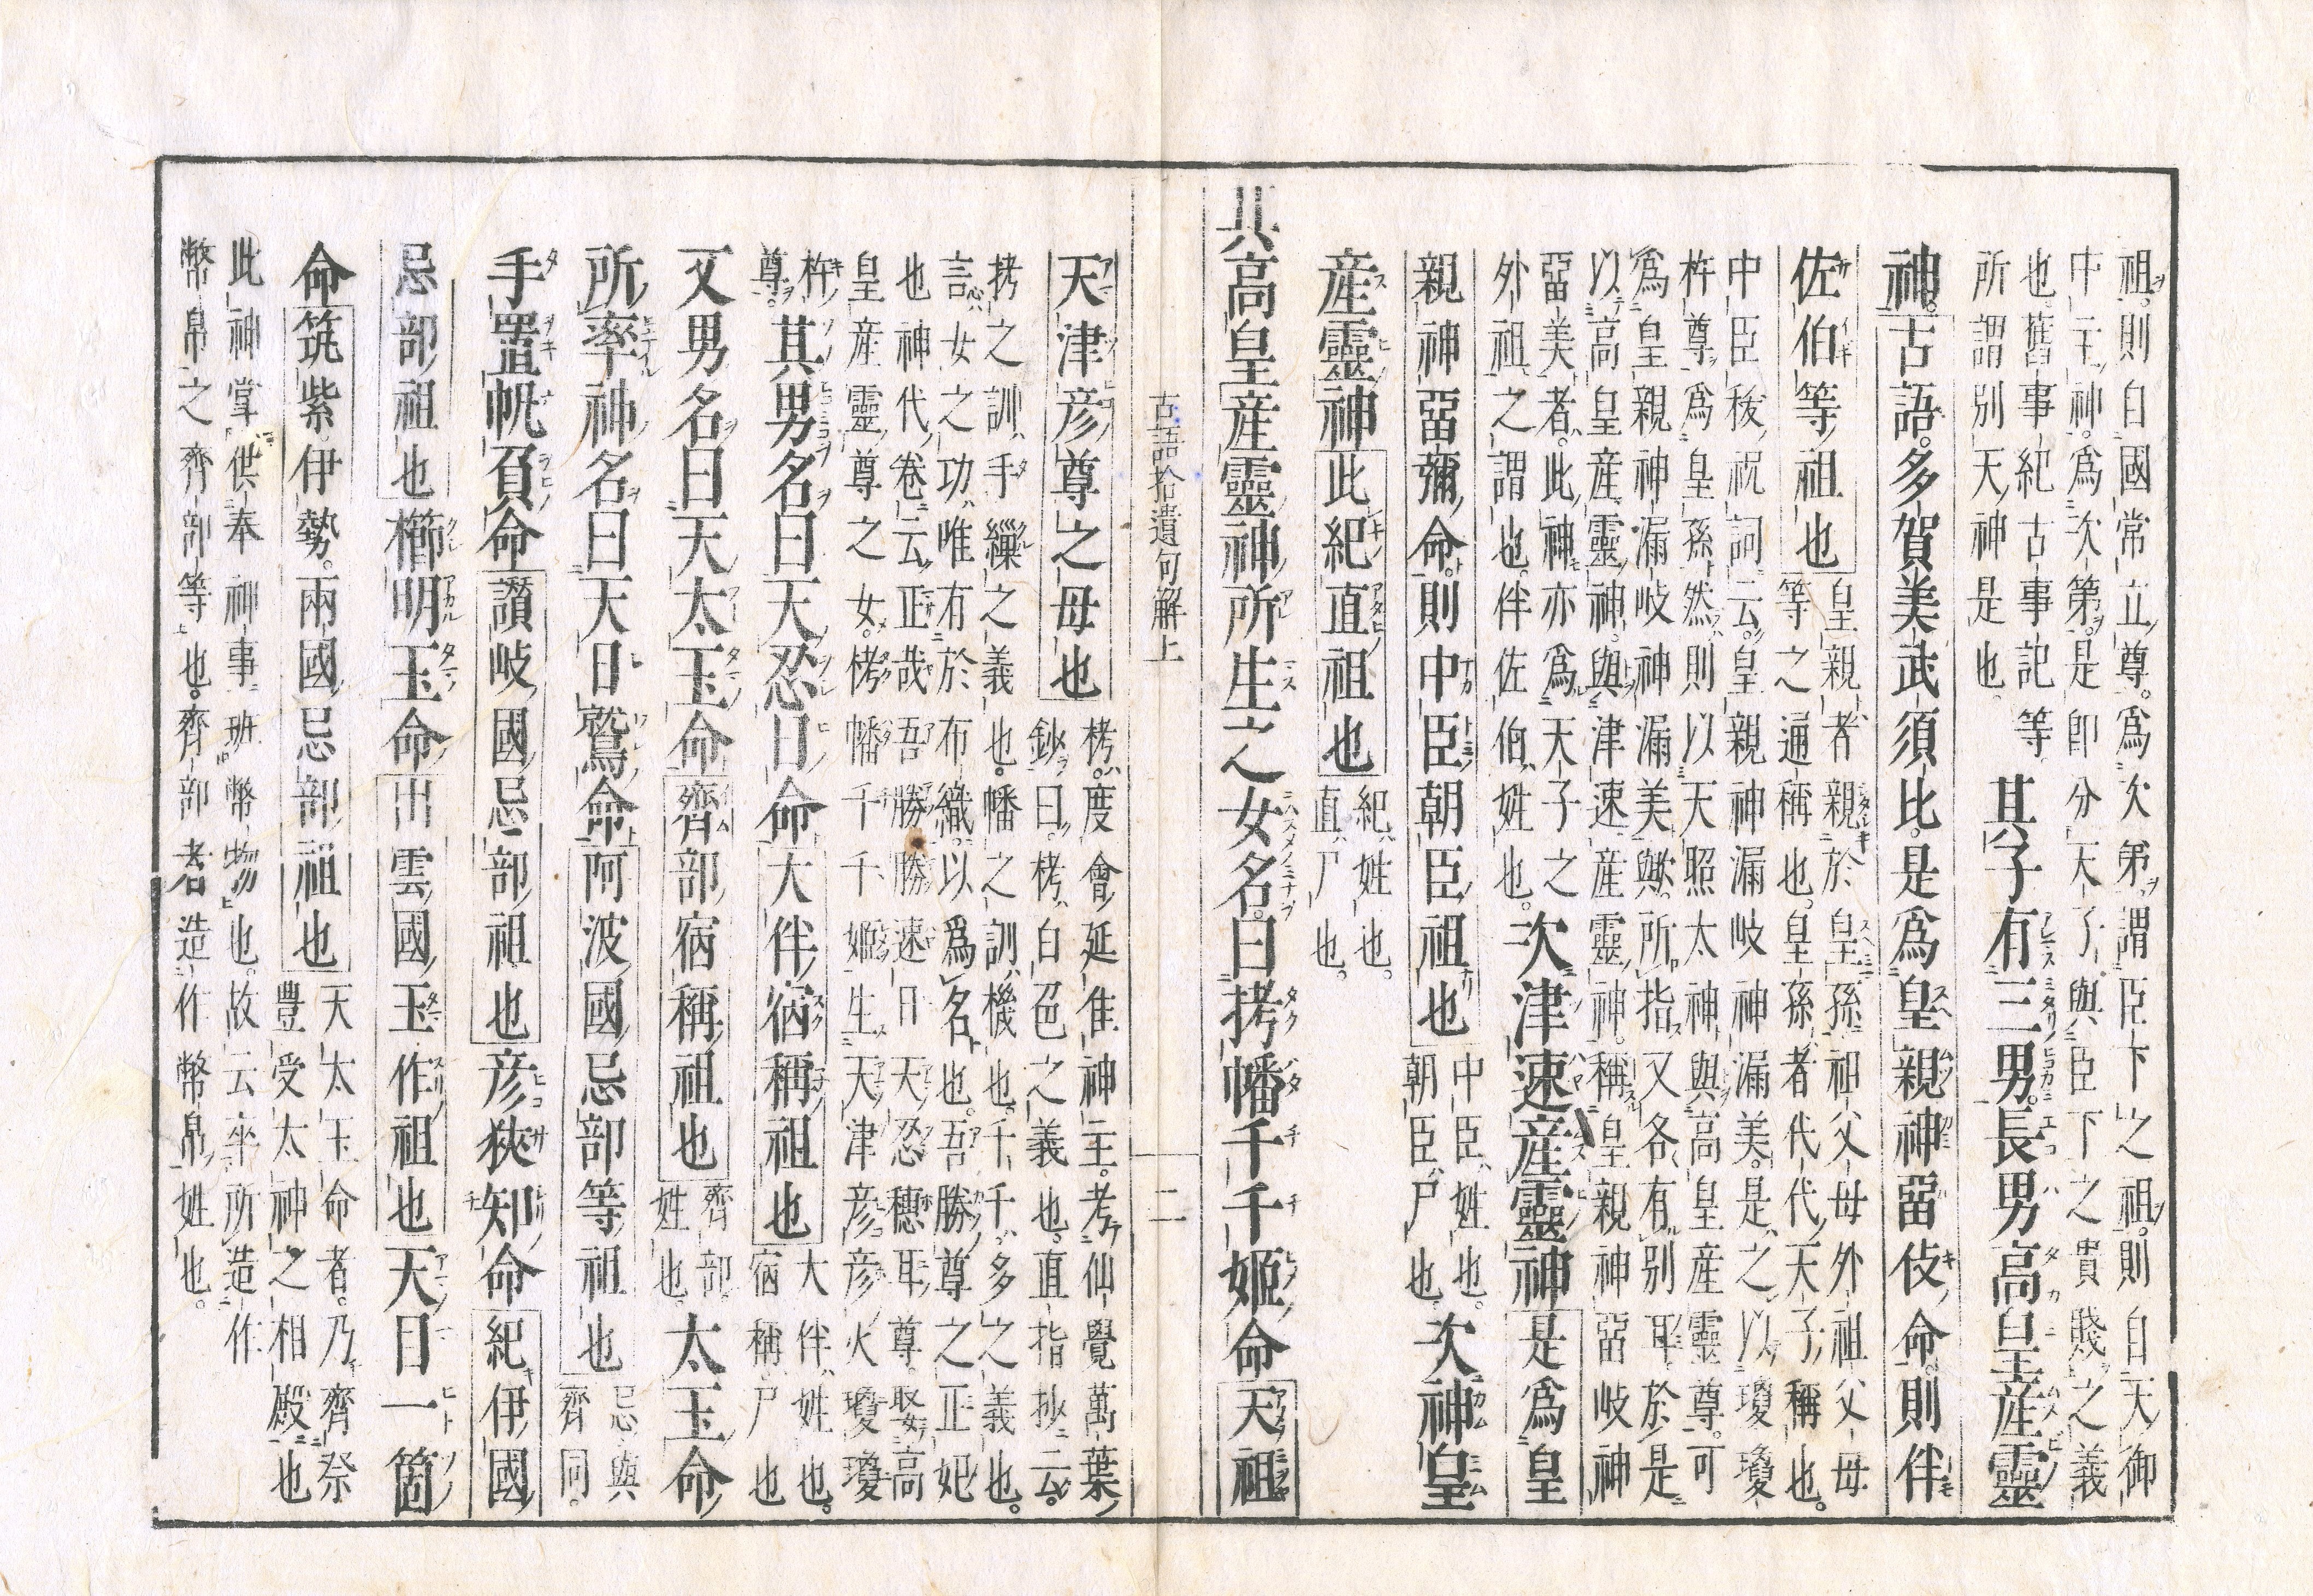 祖則自國常立尊爲次第謂臣下之祖則自天御
中主神爲次第是卽分天子與臣下之貴賤之義
也舊事紀古事記等
所謂別天神是也
其子有三男長男高皇産靈
神古語多賀美武須比是爲皇親神畱伎命則伴
佐伯等祖也
皇親者親於皇孫祖父母外祖父母
等之通稱也皇孫者代代天子稱也
中臣祓祝詞云皇親神漏岐神漏美是之以瓊瓊
杵尊爲皇孫然則以天照太神與高皇産靈尊可
爲皇親神漏岐神漏美歟所指又各有別耳於是
以高皇産靈神與津速産靈神稱皇親神畱岐神
畱美者此神亦爲天子之
外祖之謂也伴佐伯姓也
次津速産靈神是爲皇
親神畱彌命則中臣朝臣祖也
中臣姓也
朝臣尸也
次神皇
産靈神此紀直祖也
紀姓也
直尸也
其高皇産靈神所生之女名曰栲幡千千姬命天祖
古語拾遺句解上
二
天津彦尊之母也
栲度會延佳神主考仙覺萬葉
鈔曰栲白色之義也直指抄云
栲之訓手繰之義也幡之訓機也千千多之義也
言女之功唯有於布織以爲名也吾勝尊之正妃
也神代卷云正哉吾勝勝速日天忍穗耳尊娶高
皇産靈尊之女栲幡千千姬生天津彦彦火瓊瓊
杵
尊
其男名曰天忍日命大伴宿稱祖也
大伴姓也
宿稱尸也
又男名曰天太玉命齊部宿稱祖也
齊部
姓也
太玉命
所率神名曰天日鷲命阿波國忌部等祖也
忌與
齊同
手置帆負命讃岐國忌部祖也彦狹知命紀伊國
忌部祖也櫛明玉命出雲國玉作祖也天目一箇
命筑紫伊勢兩國忌部祖也
天太玉命者乃齊祭
豐受太神之相殿也
此神掌供奉神事班幣物也故云率所造作
幣帛之齊部等也齊部者造作幣帛姓也